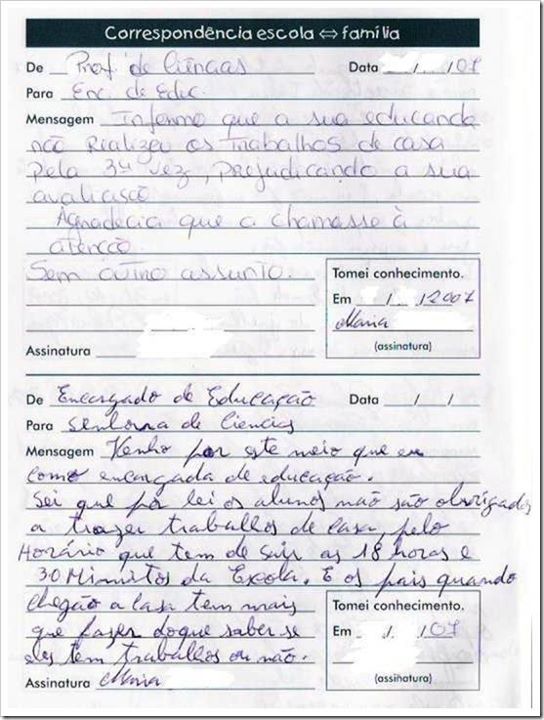 Correspondência escola ⇔ família
De Prof. de Ciências Data / / 07
Para Enc. de Educ.
Mensagem Informo que a sua educanda
não realizou os trabalhos de casa
pela 3ª vez, prejudicando a sua
avaliação
Agradecia que a chamasse à
atenção.
Sem outro assunto.
Tomei conhecimento.
Em / / 2007
Maria
(assinatura)
Assinatura
De Encargado de Educação Data / /
Para senhora de Ciencias
Mensagem Venho por este meio que eu
como encargada de educação.
Sei que por lei os alunos não são obrigados
a trazer trabalhos de casa, pelo
Horário que tem de sair as 18 horas e
30 Minutos da Escola. E os pais quando
chegão a casa tem mais
que fazer doque saber se
eles tem trabalhos ou não.
Tomei conhecimento.
Em / / 07
(assinatura)
Assinatura Maria